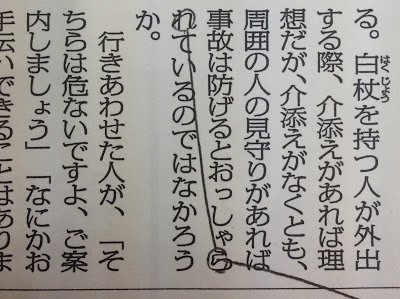 る。白杖を持つ人が外出
する際、介添えがあれば理
想だが、介添えがなくとも、
周囲の人の見守りがあれば
事故は防げるとおっしゃら
れているのではなかろう
か。
行きあわせた人が、「そ
ちらは危ないですよ、ご案
内しましょう」「なにかお
手伝いできることはありま